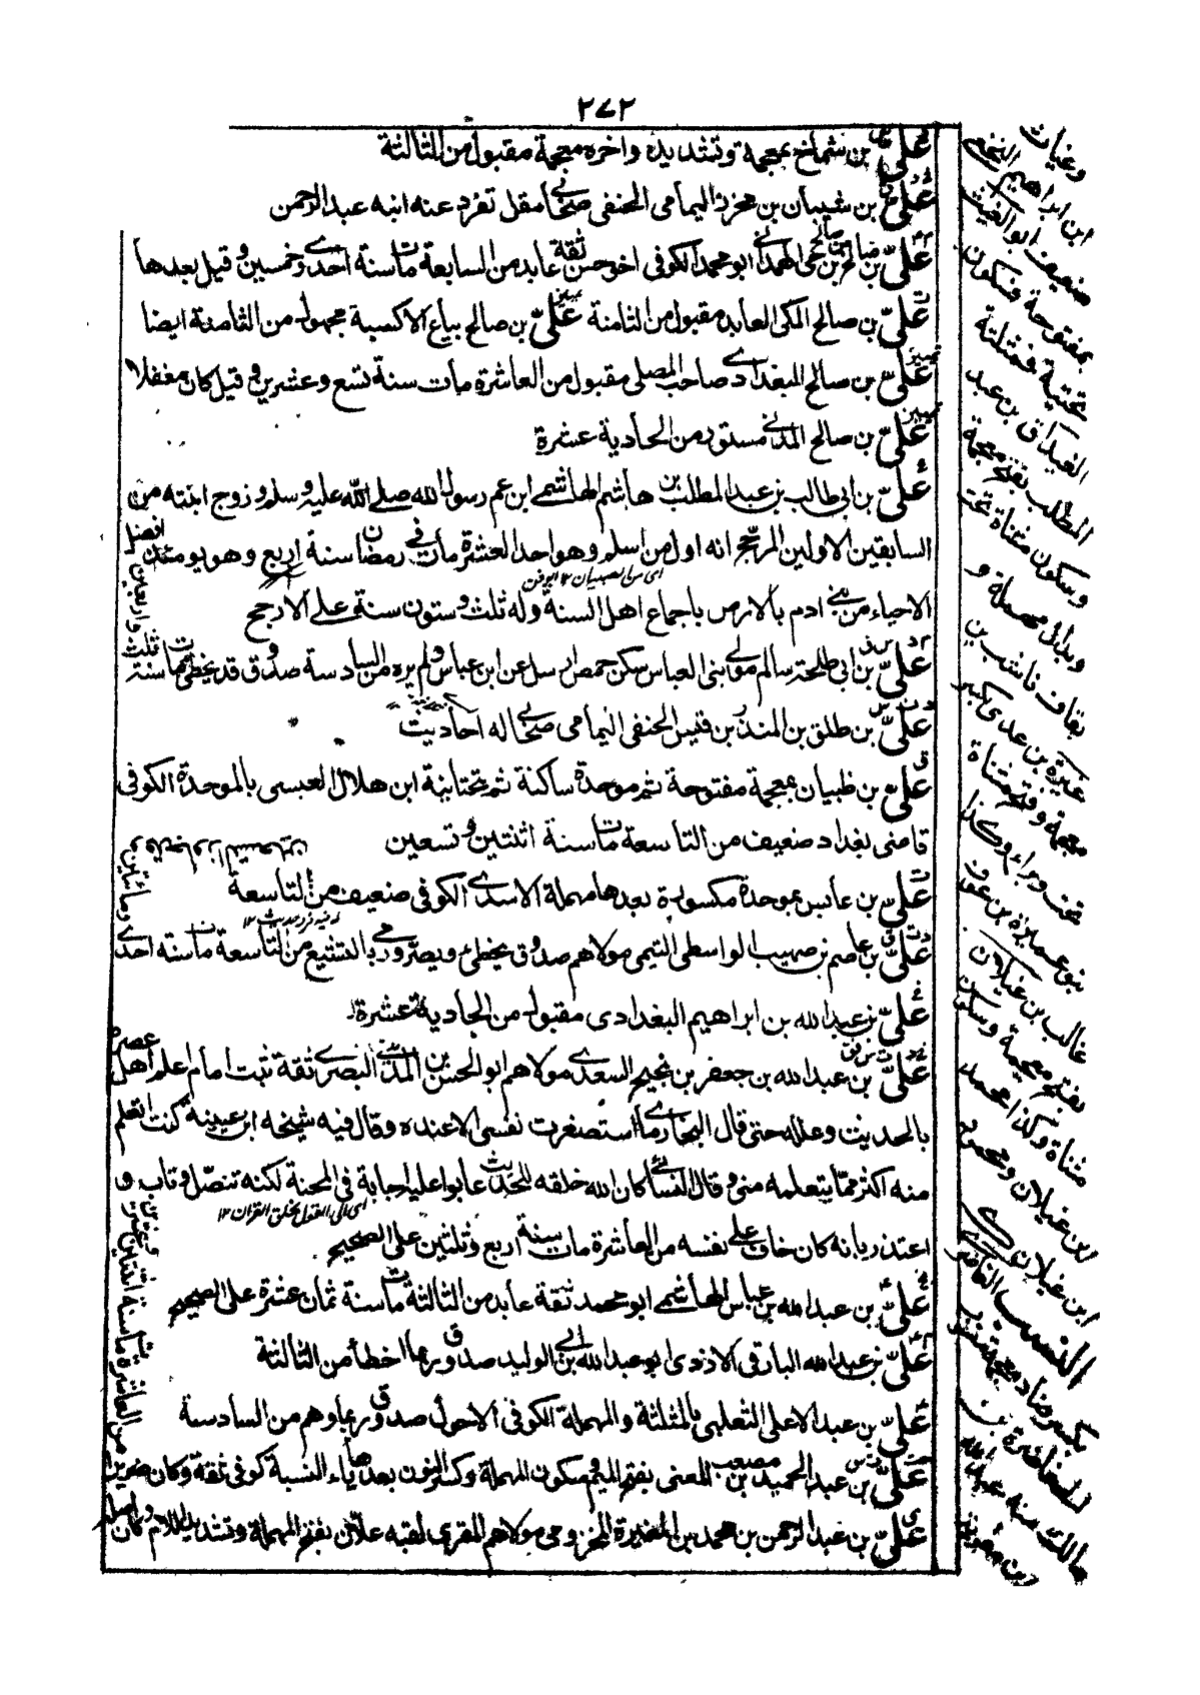 ٢٧٢
علي بن شماخ بمعجمة وتشديد وآخره معجمة مقبول من الثالثة
علي بن شيبان بن محرز اليمامى الحنفى صحابي مقل تفرد عنه ابنه عبد الرحمن
علي بن صالح بن صالح بن حي الهمداني ابو محمد الكوفى اخو حسن ثقة عابد من السابعة مات سنة احدى وخمسين وقيل بعدها
علي بن صالح المكى العابد مقبول من الثامنة علي بن صالح بياع الاكسية مجهول من الثامنة ايضا
علي بن صالح البغدادي صاحب المصلى مقبول من العاشرة مات سنة تسع وعشرين وقيل كان مغفلا
علي بن صالح المدني مستور من الحادية عشرة
علي بن ابى طالب بن عبد المطلب بن هاشم الهاشمي ابن عم رسول الله صلى الله عليه وسلم وزوج ابنته من
السابقين الاولين المرجح انه اول من اسلم وهو احد العشرة مات في رمضان سنة اربعين وهو يومئذ افضل
اى من الصبيان ١٢
الاحياء من بني ادم بالارض باجماع اهل السنة وله ثلث وستون سنة على الارجح
علي بن ابى طلحة سالم مولى بنى العباس سكن حمص ارسل عن ابن عباس ولم يره من السادسة صدوق قد يخطئ مات سنة ثلث واربعين
علي بن طلق بن المنذر بن قيس الحنفى اليمامى صحابي له احاديث
علي بن ظبيان بمعجمة مفتوحة ثم موحدة ساكنة ثم تحتانية ابن هلال العبسى بالموحدة الكوفى
قاضى بغداد ضعيف من التاسعة مات سنة اثنتين وتسعين
علي بن عابس بموحدة مكسورة بعدها مهملة الاسدي الكوفى ضعيف من التاسعة
علي بن عاصم بن صهيب الواسطى التيمى مولاهم صدوق يخطئ ويصر ورمي بالتشيع من التاسعة مات سنة احدى ومائتين
علي بن عبد الله بن ابراهيم البغدادى مقبول من الحادية عشرة
علي بن عبد الله بن جعفر بن نجيح السعدي مولاهم ابو الحسن بن المديني البصري ثقة ثبت امام اعلم اهل عصره
بالحديث وعلله حتى قال البخاري ما استصغرت نفسى الا عنده وقال فيه شيخه ابن عيينة كنت اتعلم
منه اكثر مما يتعلمه منى وقال النسائي كان الله خلقه للحديث عابوا عليه اجابة في المحنة لكنه تنصل وتاب و
اى الى القول بخلق القران ١٢
اعتذر بانه كان خاف على نفسه من العاشرة مات سنة اربع وثلثين على الصحيح
علي بن عبد الله بن عباس الهاشمي ابو محمد ثقة عابد من الثالثة مات سنة ثمان عشرة على الصحيح
علي بن عبد الله البارقى الازدى ابو عبد الله بن ابي الوليد صدوق ربما اخطأ من الثالثة
علي بن عبد الاعلى الثعلبى بالمثلثة والمهملة الكوفى الاحول صدوق ربما وهم من السادسة
علي بن عبد الحميد بن مصعب المعنى بفتح الميم وسكون المهملة وكسر النون بعدها ياء النسبة كوفى ثقة وكان ضريرا
علي بن عبد الرحمن بن محمد بن المغيرة المخزومى مولاهم المصري لقبه علان بفتح المهملة وتشديد اللام وكان اصله
وغياث
ابن ابراهيم النخعى
ضعيف ابو الغيث
بمفتوحة وسكون
تحتية فمثلثة
الغيداق بن عبد
المطلب بفتح معجمة
وسكون مثناة تحت
وبدال مهملة و
بقاف ناشب بن
غيرة بن عدى بكسر
معجمة وفتح مثناة
تحت وبراء وكذا
بنو عميرة بن عوف
غالب بن غيلان
بفتح معجمة وسكون
مثناة وكذا محمد
ابن غيلان ومحمود
ابن غيلان
النسب الغاضري
بكسر ضاد معجمة
لغاضرة بن
مالك منه عبد الله
بن معوية